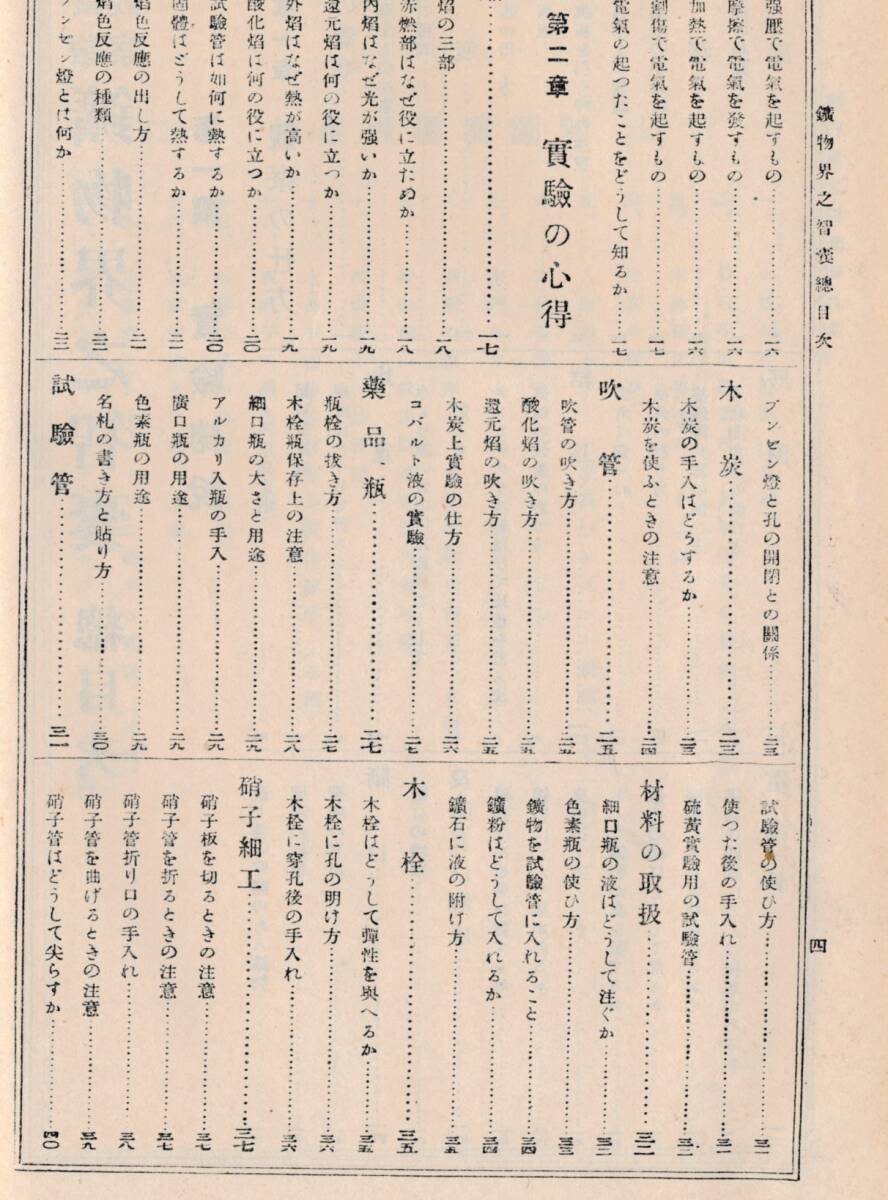 鑛物界之智嚢總目次
四
强壓で電氣を起すもの……一六
摩擦で電氣を發すもの……一六
加熱で電氣を起すもの……一六
割傷で電氣を起すもの……一七
電氣の起つたことをどうして知るか……一七
第二章 實驗の心得
……一七
焰の三部……一八
赤燃部はなぜ役に立たぬか……一八
內焰はなぜ光が强いか……一九
還元焰は何の役に立つか……一九
外焰はなぜ熱が高いか……一九
酸化焰は何の役に立つか……二〇
試驗管は如何に熱するか……二〇
固體はどうして熱するか……二一
焰色反應の出し方……二一
焰色反應の種類……二二
ブンゼン燈とは何か……二二
ブンゼン燈と孔の開閉との關係……二三
木炭……二三
木炭の手入はどうするか……二三
木炭を使ふときの注意……二四
吹管……二五
吹管の吹き方……二五
酸化焰の吹き方……二五
還元焰の吹き方……二五
木炭上實驗の仕方……二六
コバルト液の實驗……二七
藥品瓶……二七
瓶栓の拔き方……二七
木栓瓶保存上の注意……二八
細口瓶の大さと用途……二九
アルカリ入瓶の手入……二九
廣口瓶の用途……二九
色素瓶の用途……二九
名札の書き方と貼り方……三〇
試驗管……三一
試驗管の使ひ方……三一
使つた後の手入れ……三一
硫黃實驗用の試驗管……三二
材料の取扱……三二
細口瓶の液はどうして注ぐか……三二
色素瓶の使ひ方……三三
鑛物を試驗管に入れること……三四
鑛粉はどうして入れるか……三四
鑛石に液の附け方……三五
木栓……三五
木栓はどうして彈性を與へるか……三五
木栓に孔の明け方……三六
木栓に穿孔後の手入れ……三六
硝子細工……三七
硝子板を切るときの注意……三七
硝子管を折るときの注意……三七
硝子管折り口の手入れ……三八
硝子管を曲げるときの注意……三九
硝子管はどうして尖らすか……四〇